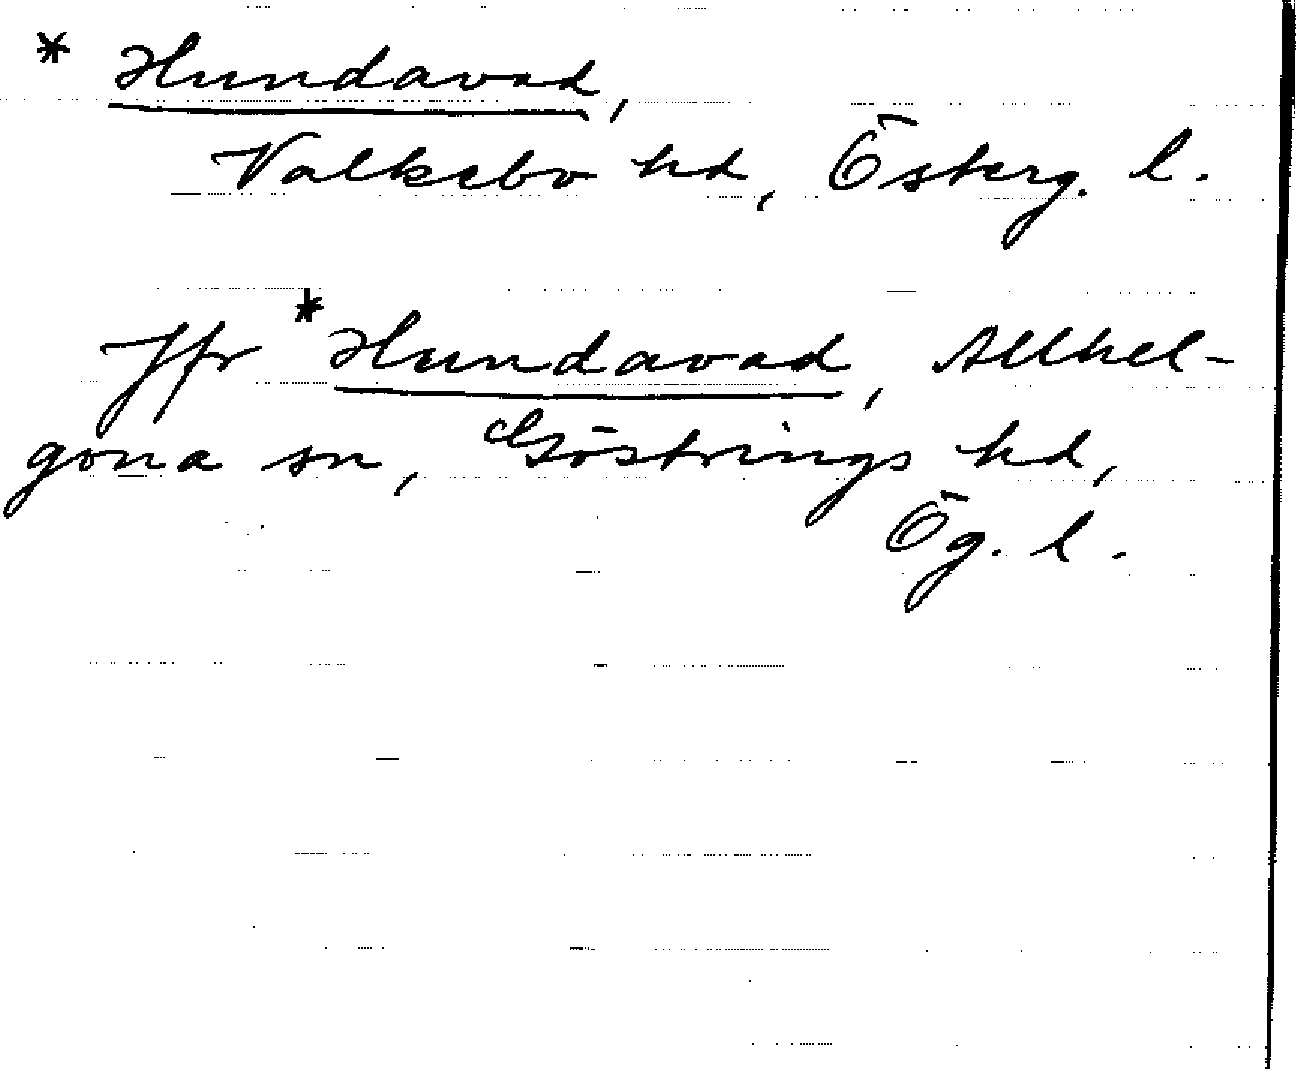 * Hundavad,
Valkebo hd, Österg. l.
Jfr *Hundavad, Allhel-
gona sn, Göstrings hd,
Ög. l.